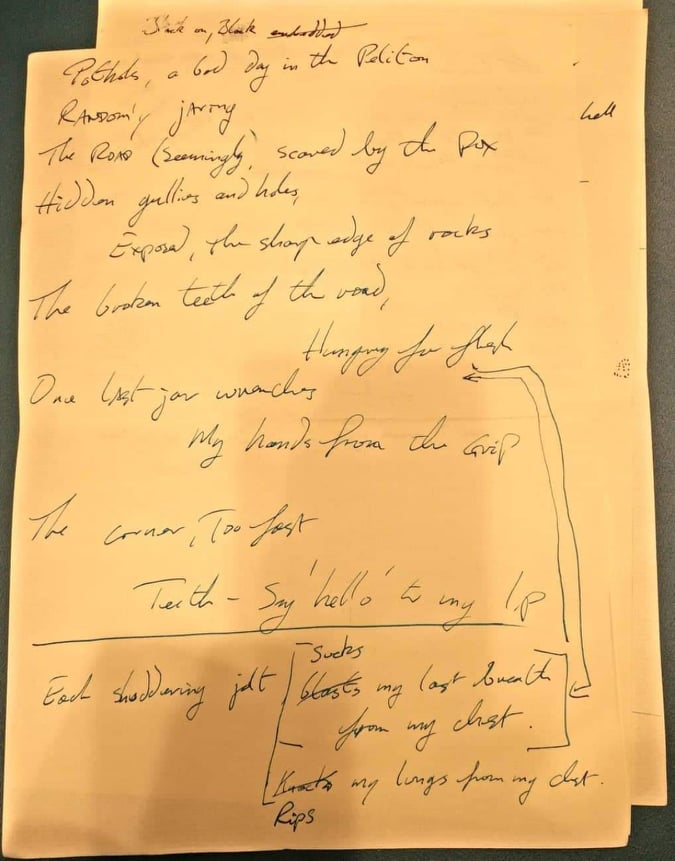 Black on, Black embedded
Potholes, a bad day in the Peliton
RANDOMly jarring
hell
The ROAD (seemingly) scared by the Pox
Hidden gullies and holes,
Exposed, the sharp edge of rocks
The broken teeth of the road,
Hungry for flesh
One last jar wrenches
My hands from the Grip
The corner, Too fast
Teeth - Say 'hello' to my lip
Sucks
Each shuddering jolt blasts my last breath
from my chest.
Knocks my lungs from my chest.
Rips